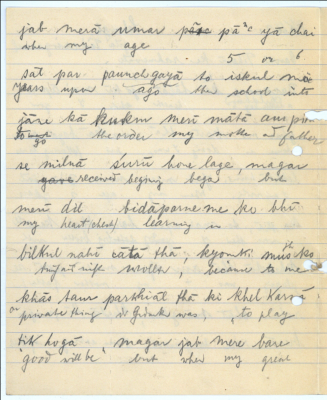 jab merā umar pā̃c yā chai
when my age 5 or 6
sāt par paunchgayā to iskul me
years upon ago the school into
jāre kā hukm meri mātā
go the order my mother father
se milnā śurū hone lage, magar
received begining began but
merā dil bidāparne me ko bhī
my heart learning in
bilkul nahī̃ cātā thā, kyonki mujh ko
because to me
khās taur par khiāl thā ki khel karnā
private thing was, to play
tik hogā magar jab mere bare
good will be but when my great